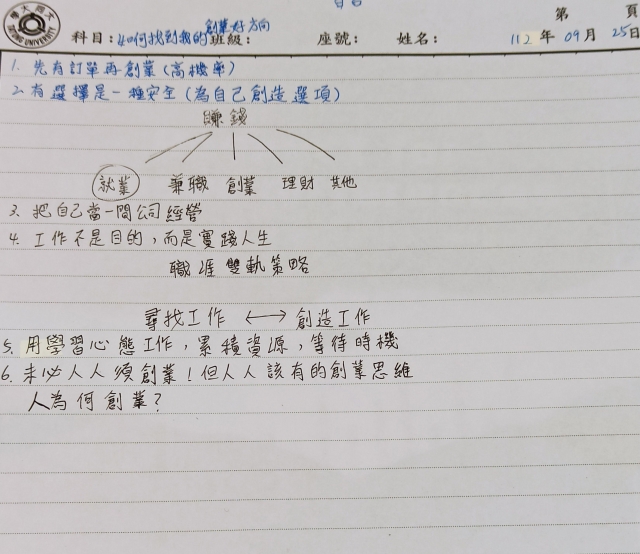 第 頁
大同大學
TATUNG UNIVERSITY
科目：如何找到我的創業好方向 班級： 座號： 姓名： 112年09月25日
1. 先有訂單再創業(高機率)
2. 有選擇是一種安全(為自己創造選項)
賺錢
就業 兼職 創業 理財 其他
3. 把自己當一間公司經營
4. 工作不是目的，而是實踐人生
職涯雙軌策略
尋找工作 ⟷ 創造工作
5. 用學習心態工作，累積資源，等待時機
6. 未必人人須創業！但人人該有的創業思維
人為何創業？